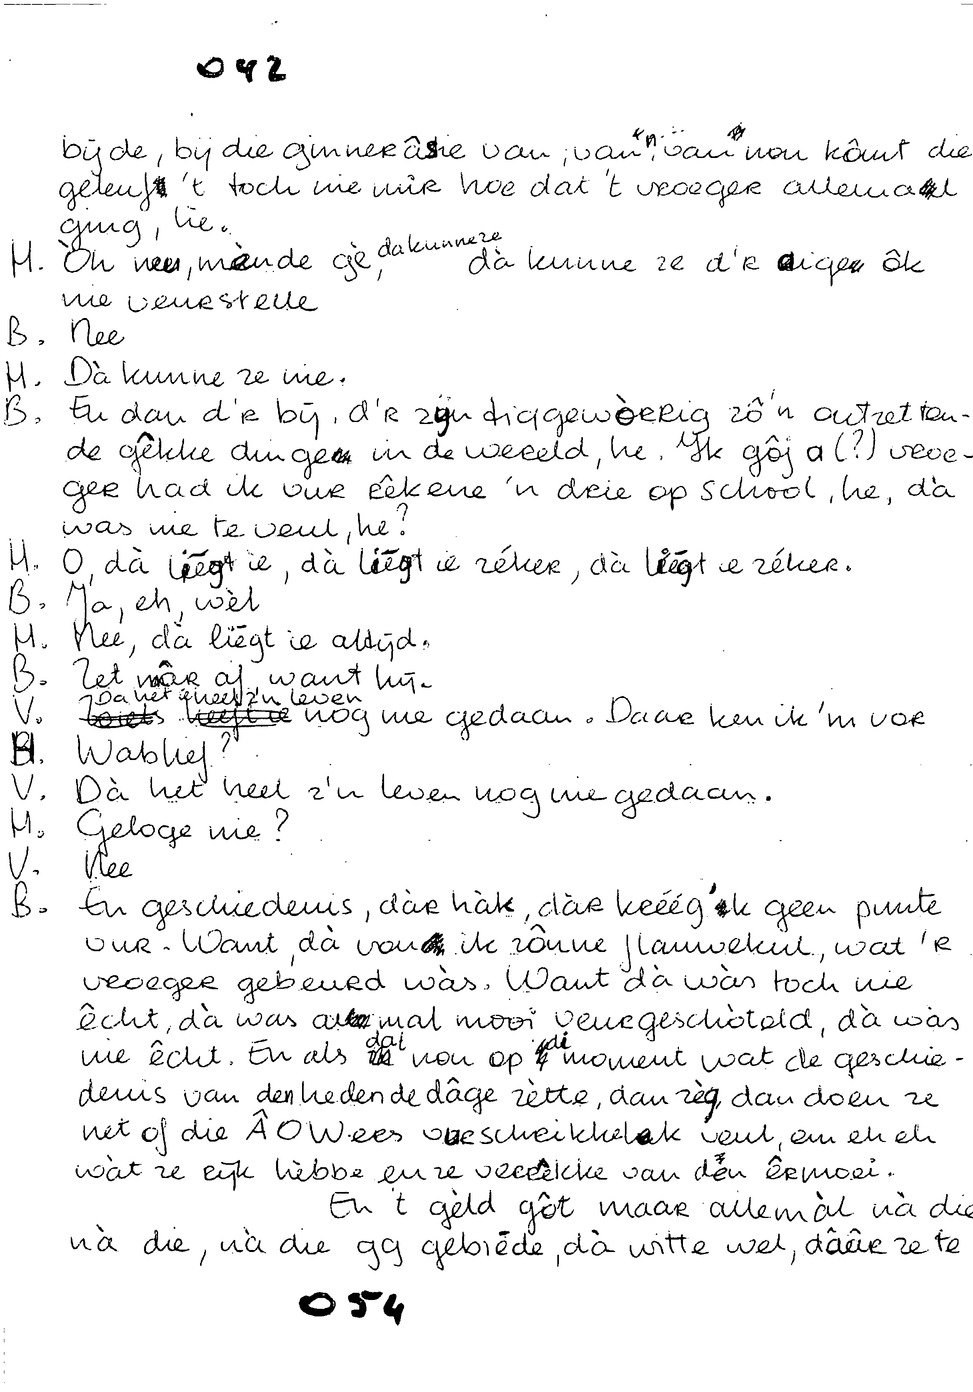 042
bij de, bij die ginnerâsie van, van, van non kômt die
geleuft 't toch nie mîr hoe dat 't vroeger allemaal
ging, hè.
H. Òh nee, mènde gè, dakunneze dà kunne ze d'r eige ôk
nie veurstelle
B. Nee
H. Dà kunne ze nie.
B. En dan d'r bij, d'r zijn tiggewòrrig zô'n ontzetten-
de gêkke dinge in de wereld, he. Ik gôj a (?) vroe-
ger had ik vur rêkene 'n drie op school, he, dà
was nie te veul, he?
H. O, dà liēgt ie, dà liēgt ie zéker, dà liēgt ie zéker.
B. Ja, eh, wèl
H. Nee, dà liēgt ie altijd.
B. Zet mâr af, want hij.
Da het ê heel z'n leven
V. nog nie gedaan. Daar ken ik 'm vor
H. Wablief?
V. Dà het heel z'n leven nog nie gedaan.
H. Geloge nie?
V. Nee
B. En geschiedenis, dàr hàk, dàr keéég 'k geen punte
vur. Want, dà von ik zônne flauwekul, wat 'r
vroeger gebeurd wàs. Want dà wàs toch nie
êcht, dà was allemal mooi veurgeschòteld, dà wàs
nie êcht. En als dat non op di moment wat de geschie-
denis van den hedende dâge zètte, dan zèg, dan doen ze
net of die ÂOWers verscheikkelek veul, em eh eh
wàt ze rijk hèbbe en ze verrêkke van dên êrmoei.
En 't gèld gôt maar allemàl nà die
nà die, nà die gg gebiēde, dà witte wel, dââr ze te
054